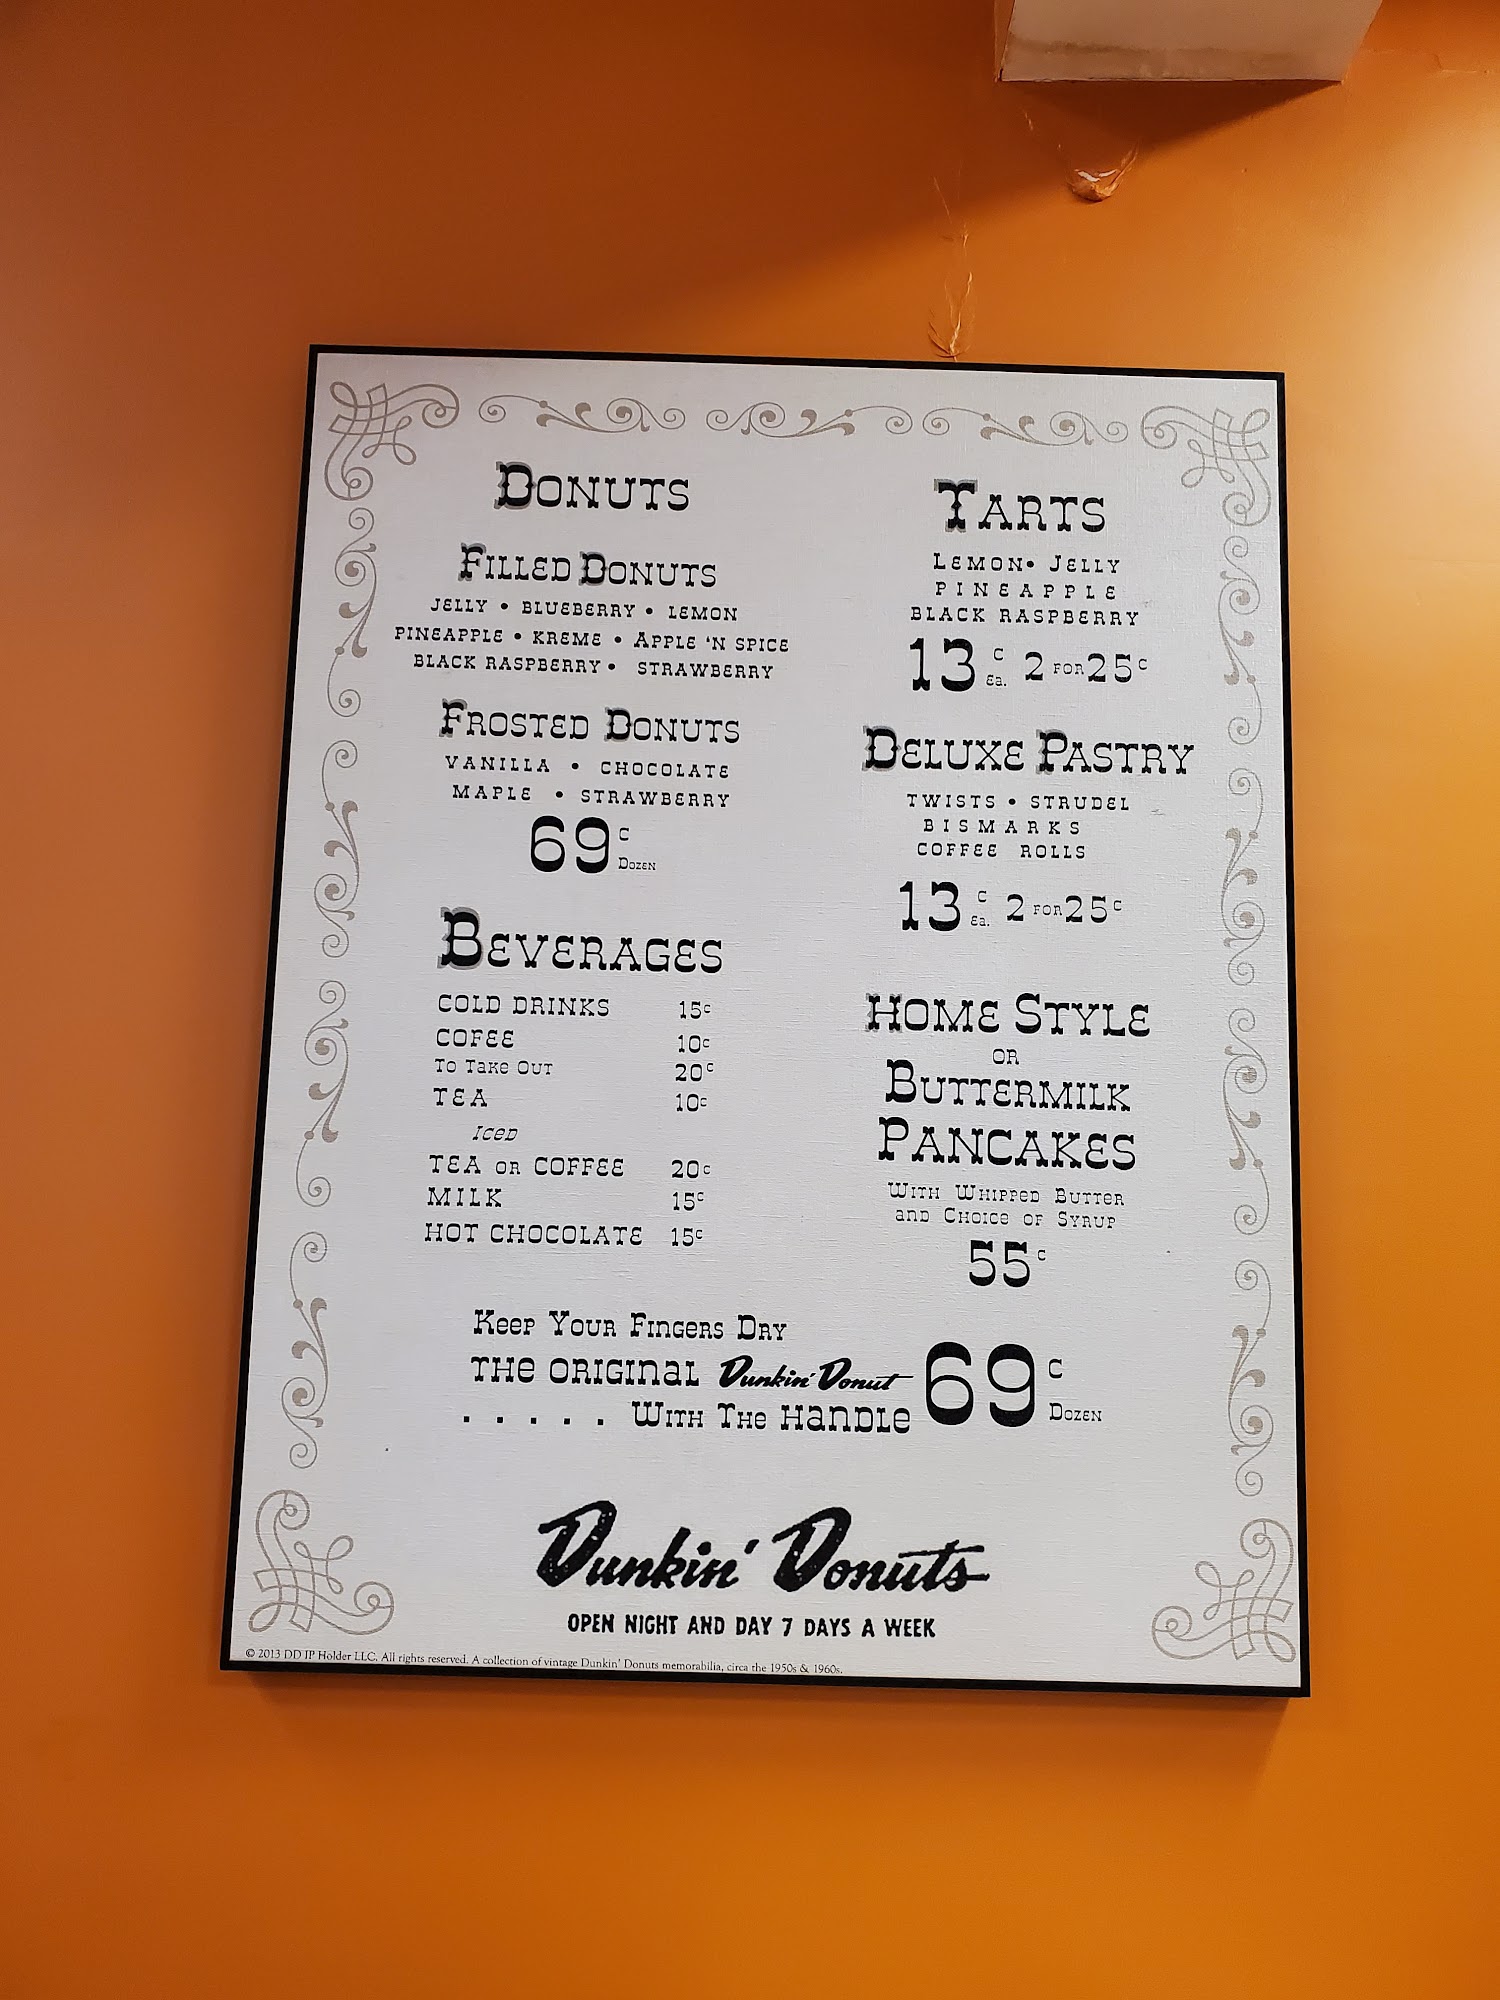 DONUTS
FILLED DONUTS
JELLY • BLUEBERRY • LEMON
PINEAPPLE • KREME • APPLE 'N SPICE
BLACK RASPBERRY • STRAWBERRY
FROSTED DONUTS
VANILLA • CHOCOLATE
MAPLE • STRAWBERRY
69c DOZEN
BEVERAGES
COLD DRINKS 15c
COFEE 10c
TO TAKE OUT 20c
TEA 10c
ICED
TEA OR COFFEE 20c
MILK 15c
HOT CHOCOLATE 15c
TARTS
LEMON• JELLY
PINEAPPLE
BLACK RASPBERRY
13c Ea. 2 FOR 25c
DELUXE PASTRY
TWISTS • STRUDEL
BISMARKS
COFFEE ROLLS
13c Ea. 2 FOR 25c
HOME STYLE
OR
BUTTERMILK
PANCAKES
WITH WHIPPED BUTTER
AND CHOICE OF SYRUP
55c
KEEP YOUR FINGERS DRY
THE ORIGINAL Dunkin' Donut
. . . . . WITH THE HANDLE
69c DOZEN
Dunkin' Donuts
OPEN NIGHT AND DAY 7 DAYS A WEEK
© 2013 DD IP Holder LLC. All rights reserved. A collection of vintage Dunkin' Donuts memorabilia, circa the 1950s & 1960s.